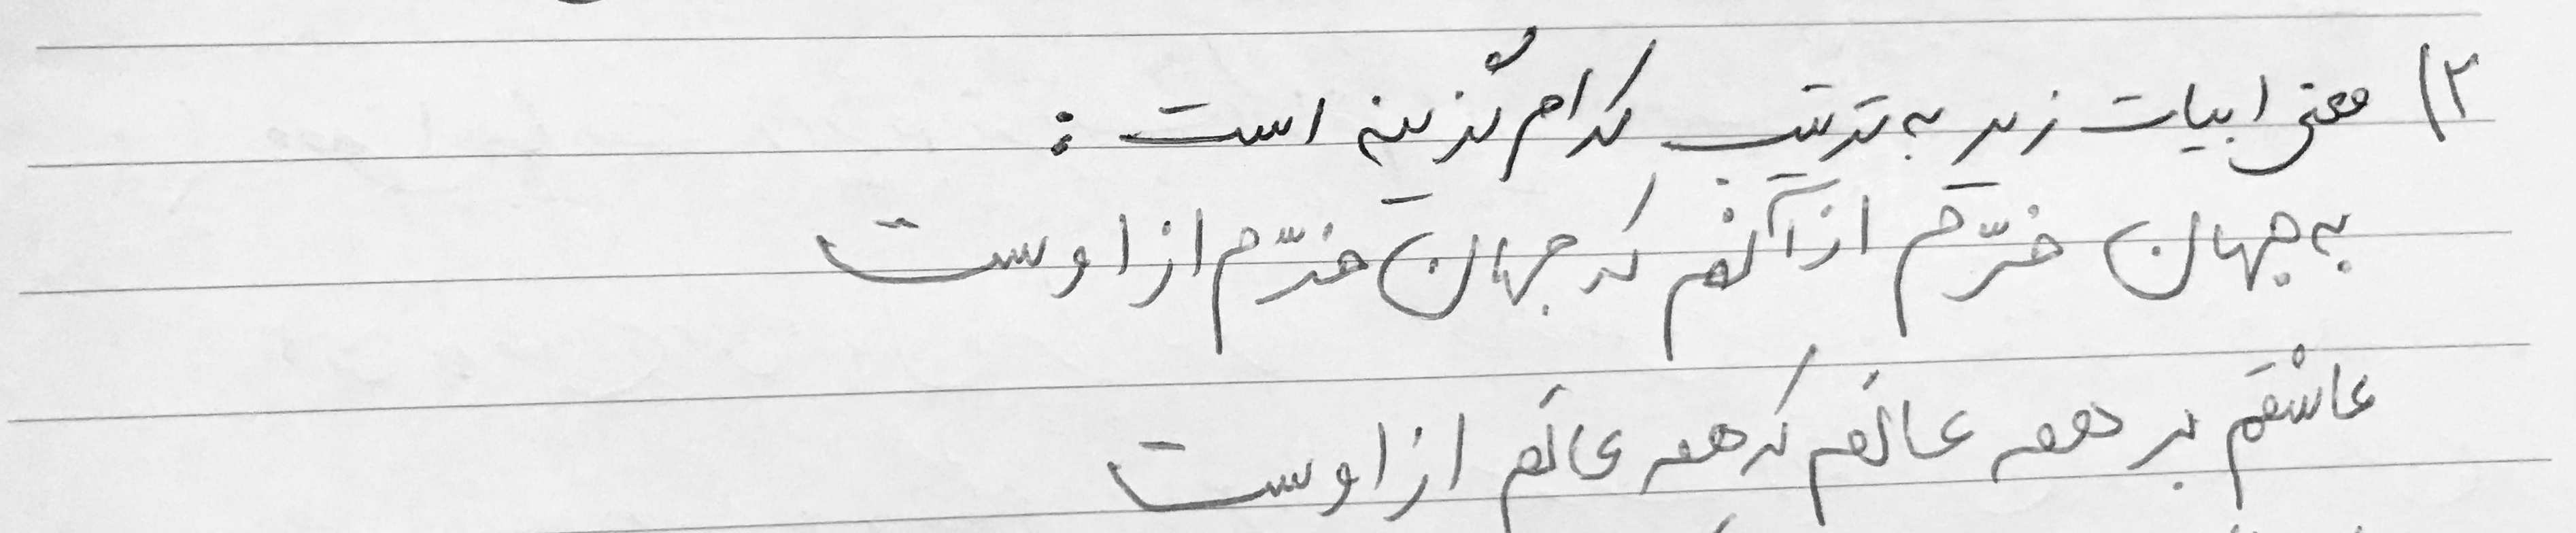 ۲) معنی ابیات زیر به ترتیب کدام گزینه است :
به جهان خرّم از آنم که جهان خرّم از اوست
عاشقم بر همه عالم که همه عالم از اوست